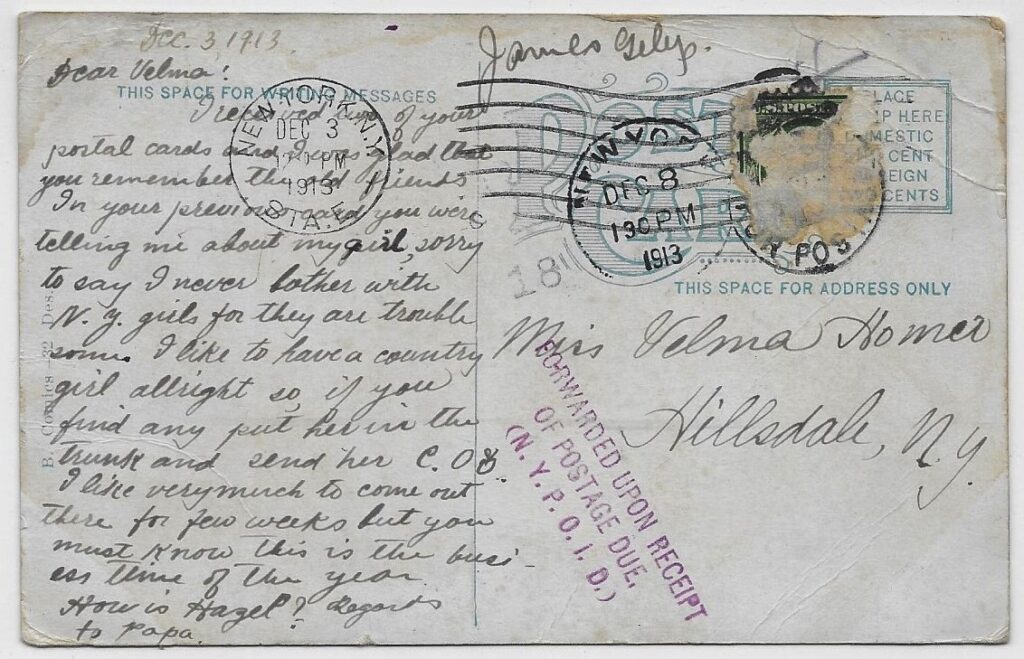 Dec. 3 1913.
James
Dear Velma!
THIS SPACE FOR WRITING MESSAGES
I received two of your
postal cards and I was glad that
you remember the old friends
In your previous card you were
telling me about my girl, sorry
to say I never bother with
N. Y. girls for they are trouble
some. I like to have a country
girl allright so, if you
find any put her in the
trunk and send her C.O.D.
I like very much to come out
there for few weeks but you
must know this is the busi-
ess time of the year
How is Hazel? Regards
to Papa.
NEW YORK, N.Y.
DEC 3
PM
1913
STA.
POST
CARD
NEW YO
DEC 8
130 PM
1913
POS
U.S. POS
PLACE
STAMP HERE
DOMESTIC
CENT
FOREIGN
CENTS
18
THIS SPACE FOR ADDRESS ONLY
Miss Velma Homer
Hillsdale, N.Y.
FORWARDED UPON RECEIPT
OF POSTAGE DUE,
(N. Y. P. O. I. D.)
B. Comics—32 Des.